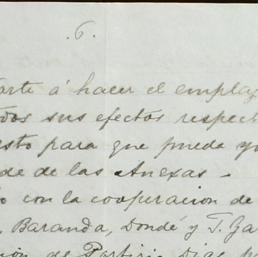 .6.
arte á hacer el empla
dos sus efectos respect
esto para que pueda y
de de las Anexas -
o con la cooperacion de
, Baranda, Dondé y T. Gar
ion de Porfirio Diaz